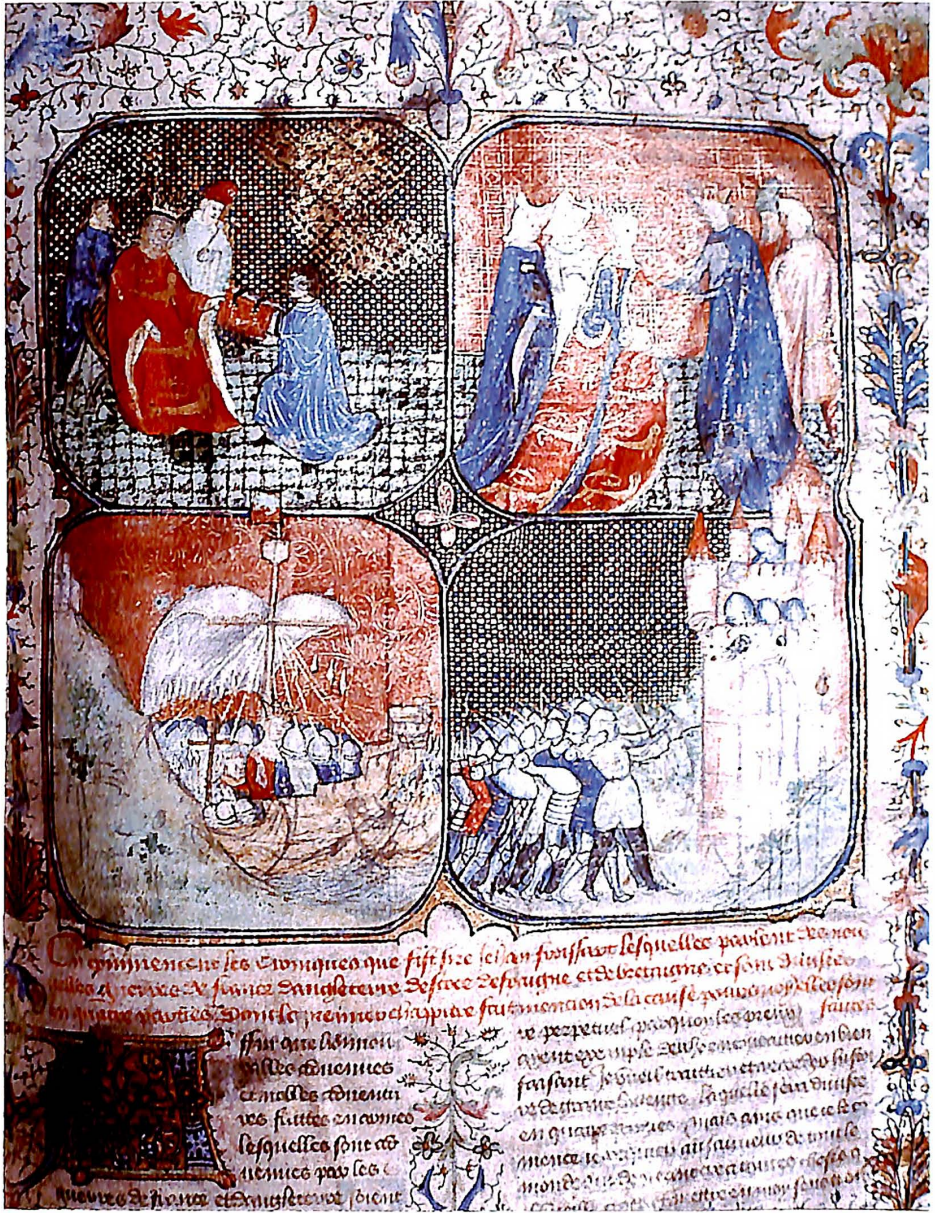 Cy commencent les Croniques que fist sire Jehan froissart lesquelles parlent des nou
uelles guerres de france dangleterre descoce despaigne et de bretaigne et sont diuisees
en quatre parties Dont le premier chappitre fait mention de la cause pourquoy elles sont
faittes
Affin que honnou
rables aduenues
et nobles auentu
res faittes en armes
lesquelles sont ad
uenues par les
guerres de france et dangleterre soient
re perpetuel par quoy les preux
ayent exemple deulx encouragier en bien
faisant Je vueil traittier et recorder histoi
re de grant louenge laquelle sera diuisee
en quatre parties mais ains que je la com
mence je requier au sauueur de tout le
monde qui de neant crea toutes choses q